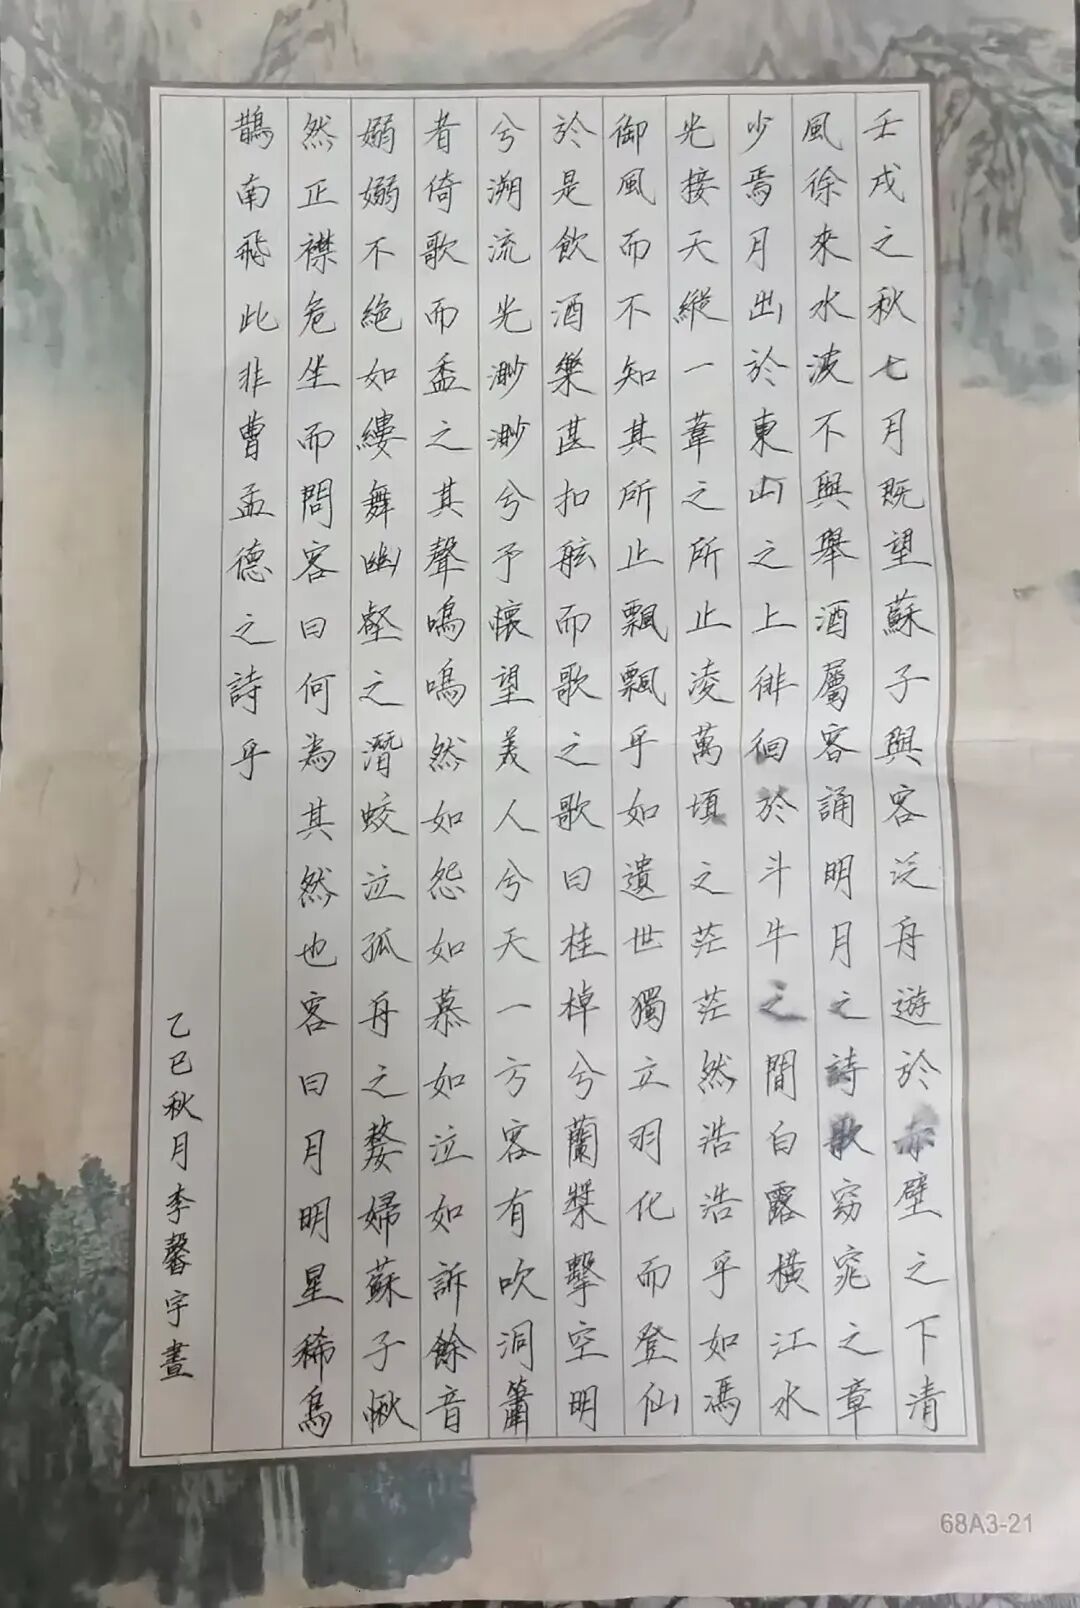 壬戌之秋七月既望蘇子與客泛舟遊於赤壁之下清
風徐來水波不興舉酒屬客誦明月之詩歌窈窕之章
少焉月出於東山之上徘徊於斗牛之間白露橫江水
光接天縱一葦之所止凌萬頃之茫茫然浩浩乎如馮
御風而不知其所止飄飄乎如遺世獨立羽化而登仙
於是飲酒樂甚扣舷而歌之歌曰桂棹兮蘭槳擊空明
兮溯流光渺渺兮予懷望美人兮天一方客有吹洞簫
者倚歌而盉之其聲嗚嗚然如怨如慕如泣如訴餘音
嫋嫋不絕如縷舞幽壑之潛蛟泣孤舟之嫠婦蘇子愀
然正襟危坐而問客曰何為其然也客曰月明星稀烏
鵲南飛此非曹孟德之詩乎
乙巳秋月李馨宇書
68A3-21